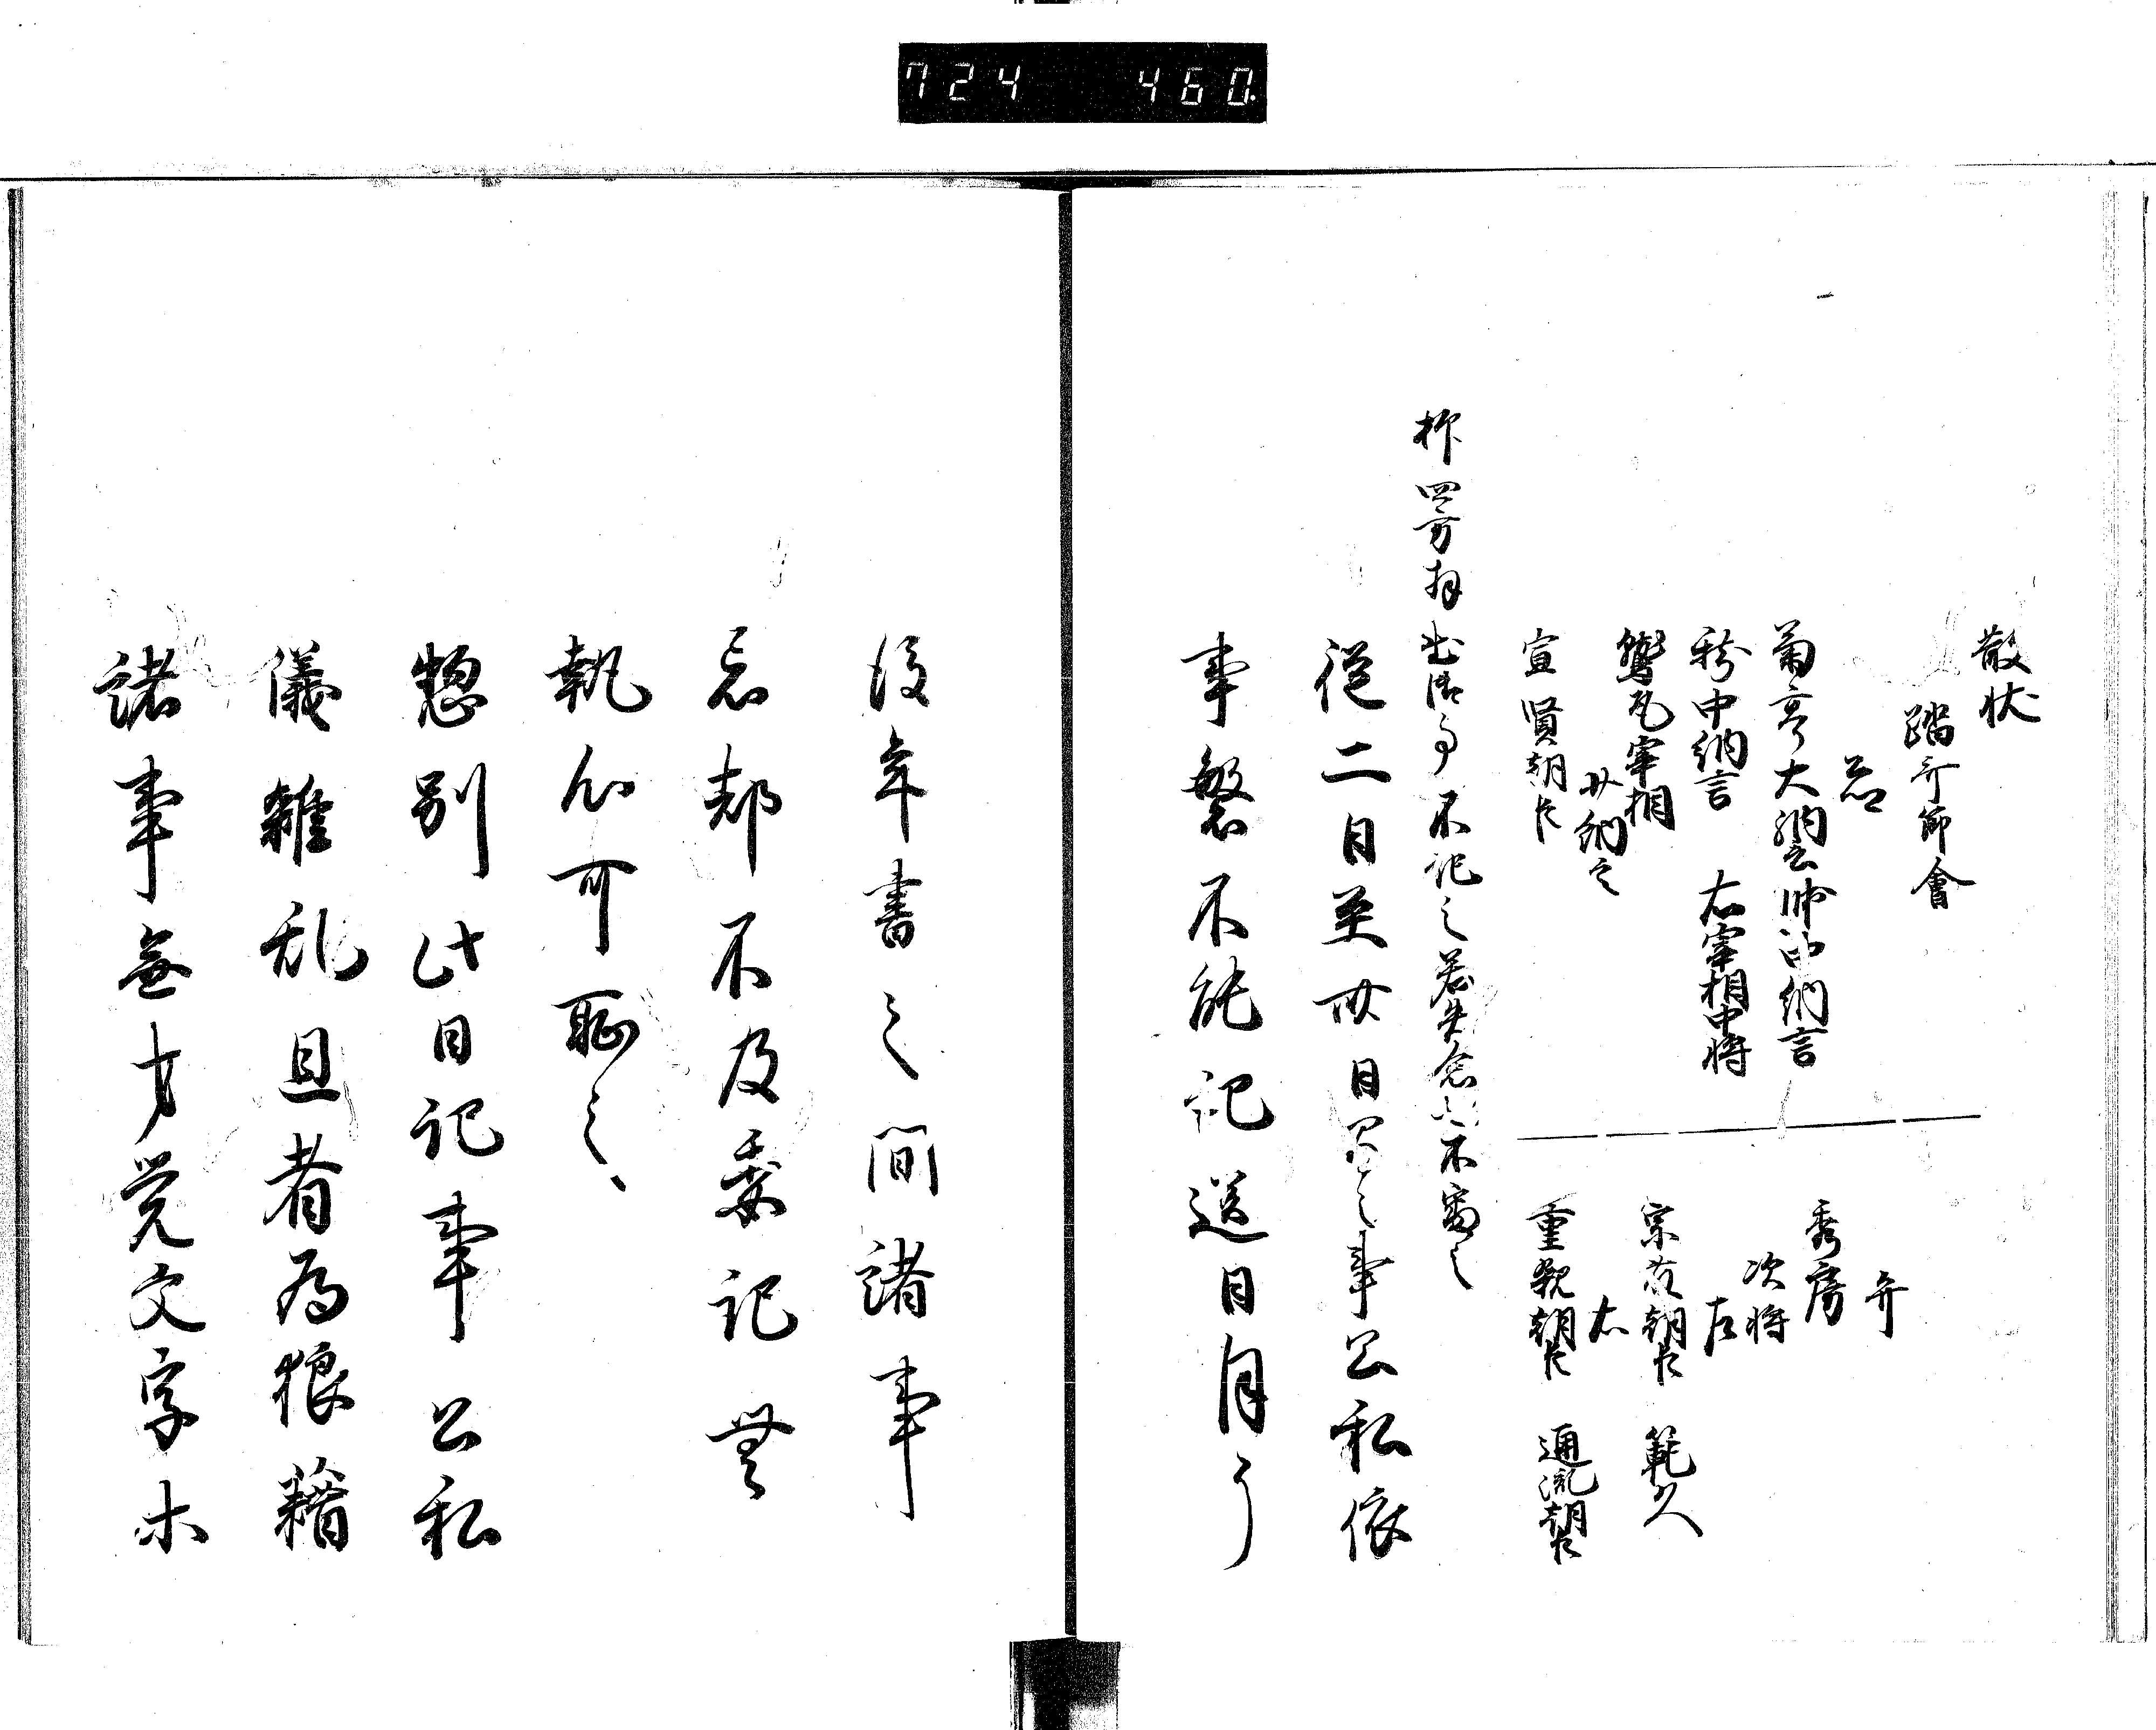 724 460
散状
踏哥節會
菊亭大納言 帥中納言
中納言 右宰相中将
鷲尾宰相
少納言
宣賢朝臣
弁
秀房
次将
左
宗藤朝臣 範久
右
重親朝臣 通胤朝臣
抑四方拝出御事不記之若失念不審之
従二日至廿日 之事公私依
事繁不能記送日月了
後年書之間諸事
忘却不及委記無
執心可恥之、
惣別此日記事公私
儀雑乱且者為狼藉
諸事無才覚文字木